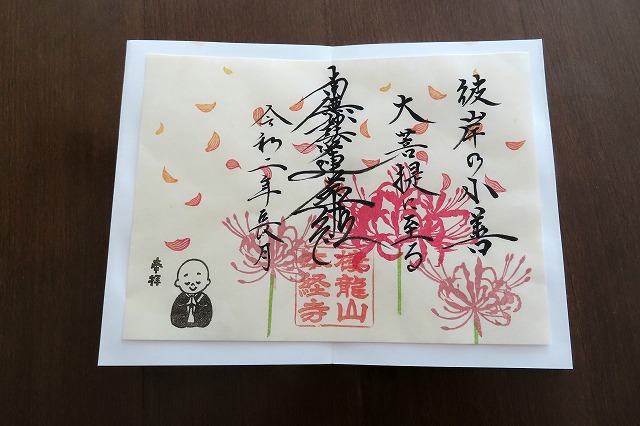 彼岸の小善
大菩提に至る
南無妙法蓮華経
令和二年長月
奉拝
龍山
経寺